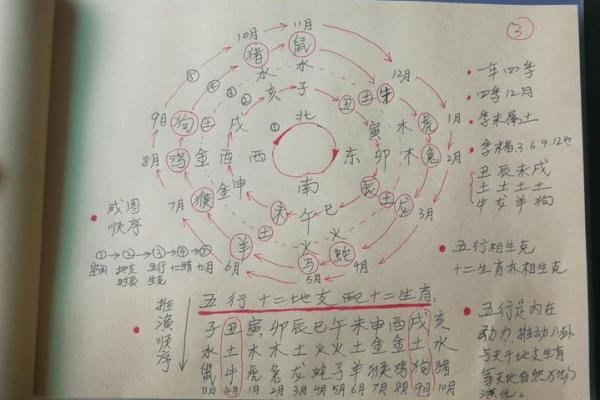 ③
10月 11月
猪 鼠
水 水
12月
亥 子
丑 土 牛
9月 狗 土 戌
①
北
寅 木 虎 1月
8月 鸡 金 酉 西
东 卯 木 兔 2月
南
7月 猴 金 申
辰 土 龙 3月
未 午 巳
土 火 火
羊 马 蛇
6月 5月 4月
• 一年四季
• 四季12月
• 季末属土
• 季末指3.6.9.12月
丑辰未戌
土土土土
牛龙羊狗
• 五行相生克
十二生肖亦相生克
• 五行是内在
动力,推动八卦
与天干地支生肖
等天地自然万物
演化。
• 成图
顺序
①→②→③→④→⑤
空间 地支 五行 十二肖 十二月
时辰 生克
• 推演顺序
五行十二地支配十二生肖:
子丑寅卯辰巳午未申酉戌亥
水土木木土火火土金金土水
鼠牛虎兔龙蛇马羊猴鸡狗猪
11月 12月 1月 2月 3月 4月 5月 6月 7月 8月 9月 10月